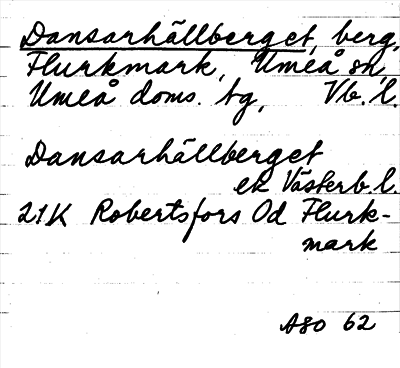 Dansarhällberget, berg,
Flurkmark, Umeå sn,
Umeå doms. tg, Vb. l.
Dansarhällberget
ek Västerb. l.
21K Robertsfors Od Flurk-
mark
ASO 62